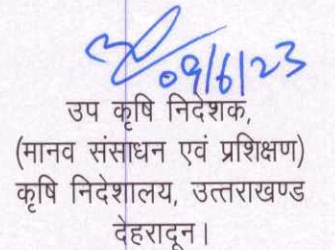 09/6/23
उप कृषि निदेशक,
(मानव संसाधन एवं प्रशिक्षण)
कृषि निदेशालय, उत्तराखण्ड
देहरादून।